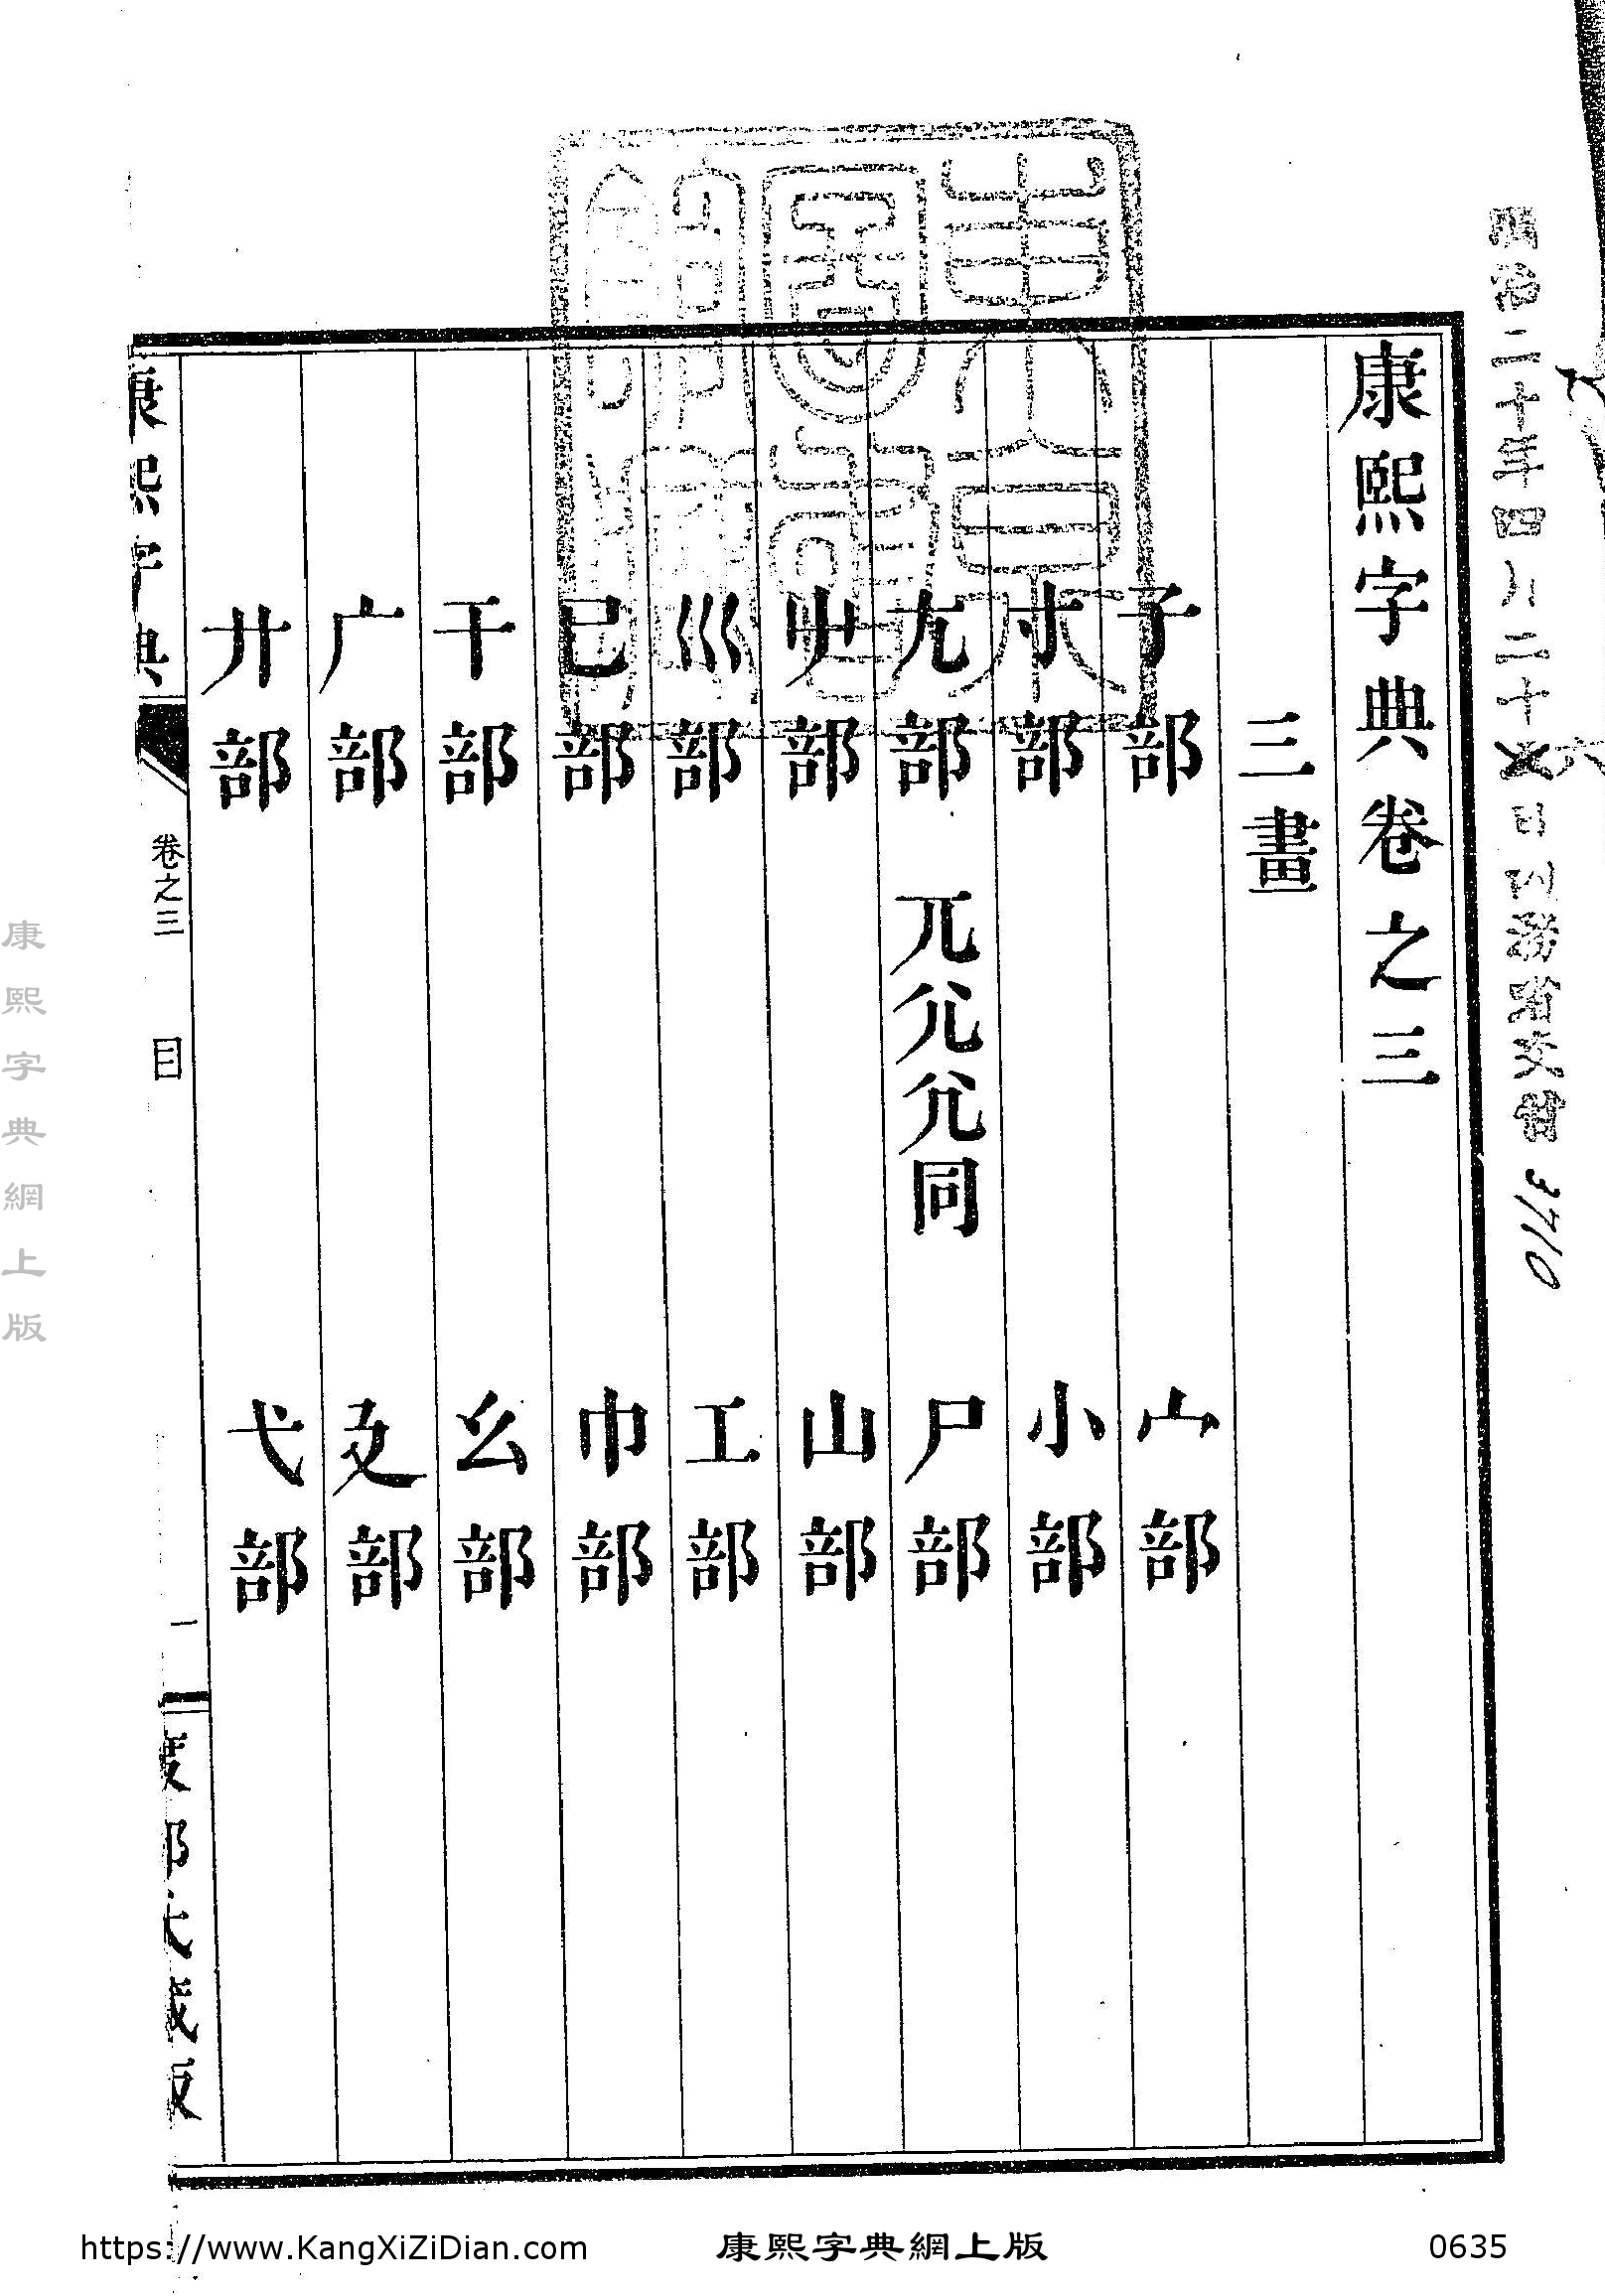 康熙字典卷之三
三畫
子部 宀部
寸部 小部
尢部 兀尣尣同 尸部
屮部 山部
巛部 工部
己部 巾部
干部 幺部
广部 廴部
廾部 弋部
康熙字典 卷之三 目 一 渡部氏藏版
二十年四月二十六日内務省交付 3710
康熙字典網上版
https://www.KangXiZiDian.com 康熙字典網上版 0635